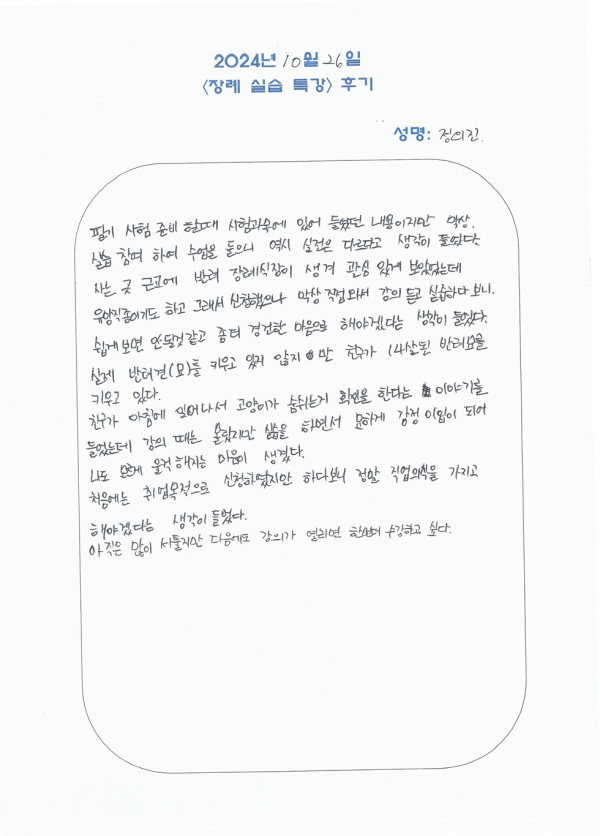 2024년 10월 26일
<장례 실습 특강> 후기
성명: 정의진
필기 시험 준비 할때 시험과목에 있어 들었던 내용이지만 막상.
실습 참여 하여 수업을 들으니 역시 실전은 다르다고 생각이 들었다
사는 곳 근교에 반려 장례식장이 생겨 관심 있게 보았었는데
유망직종이기도 하고 그래서 신청했으나 막상 직접 와서 강의 듣고 실습하다 보니.
쉽게 보면 안될것 같고 좀더 경건한 마음으로 해야겠다는 생각이 들었다.
실제 반려견(묘)를 키우고 있지 않지만 친구가 14살된 반려묘를
키우고 있다.
친구가 아침에 일어나서 고양이가 숨쉬는거 확인을 한다는 이야기를
들었는데 강의 때는 몰랐지만 실습을 하면서 묘하게 감정이입이 되어
나도 모르게 울컥 해지는 마음이 생겼다.
처음에는 취업목적으로 신청하였지만 하다보니 정말 직업의식을 가지고
해야겠다는 생각이 들었다.
아직은 많이 서툴지만 다음에도 강의가 열리면 한번더 수강하고 싶다.